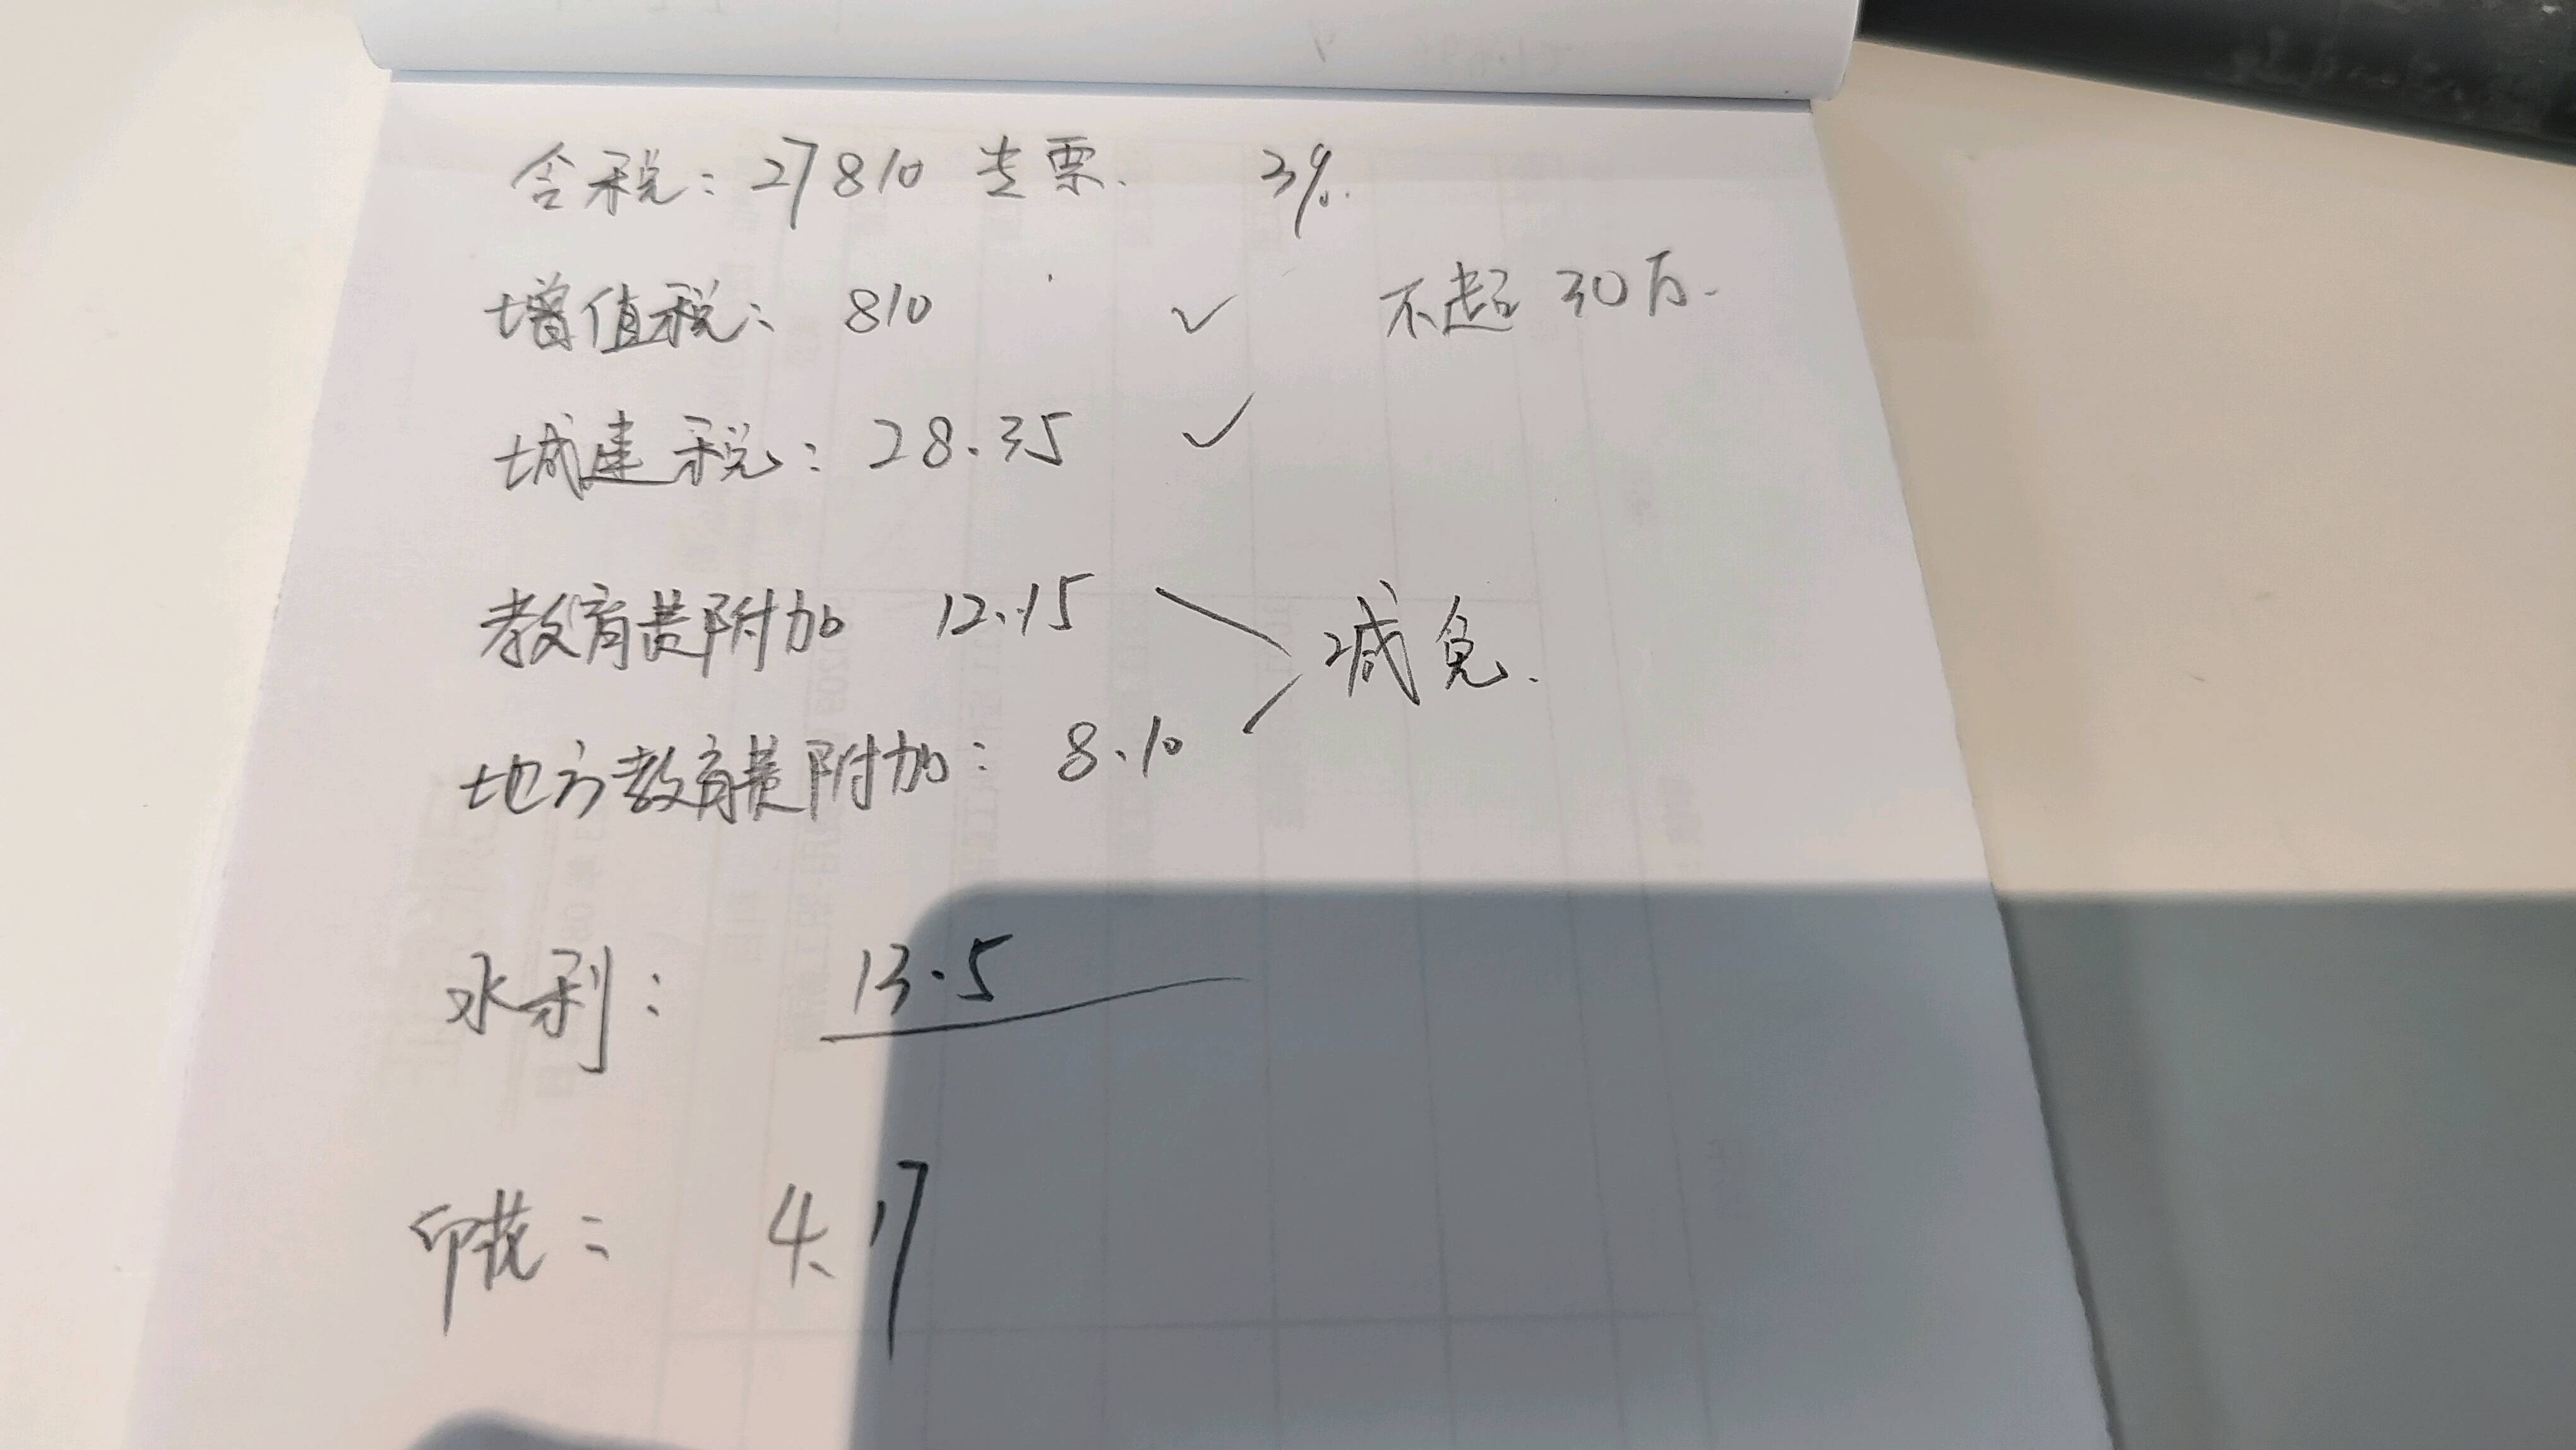 含税：27810 专票. 3%.
增值税：810 ✓ 不超 30万.
城建税：28.35 ✓
教育费附加 12.15
减免.
地方教育费附加：8.10
水利：13.5
印花：4.17